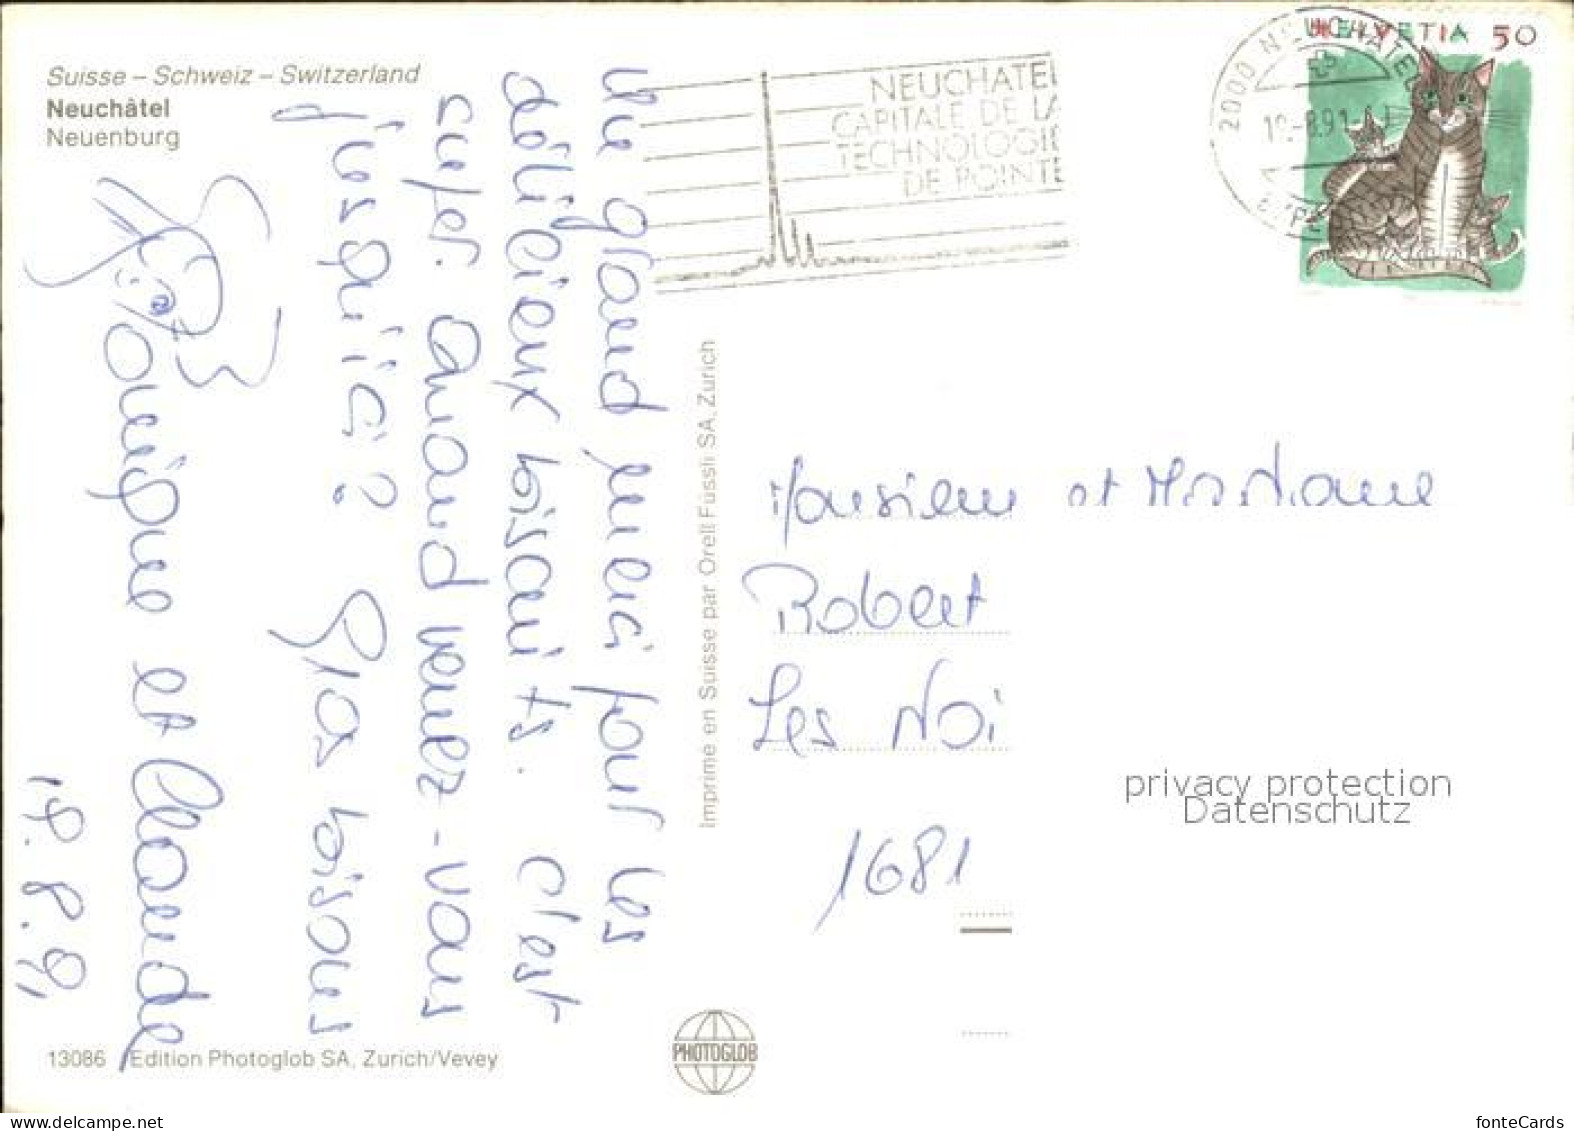 Suisse – Schweiz – Switzerland
Neuchâtel
Neuenburg
NEUCHATEL
CAPITALE DE LA
TECHNOLOGIE
DE POINTE
2000 NEUCHATEL
HELVETIA 50
un grand merci pour les
délicieux biscuits. C'est
super. Quand venez-vous
jusqu'ici? Gros bisous
Monique et Claude
17.8.91
Imprimé en Suisse par Orell Füssli SA, Zurich
Monsieur et Madame
Robert
Les Noi
1681
privacy protection
Datenschutz
13086 Edition Photoglob SA, Zurich/Vevey
PHOTOGLOB
www.delcampe.net
fonteCards